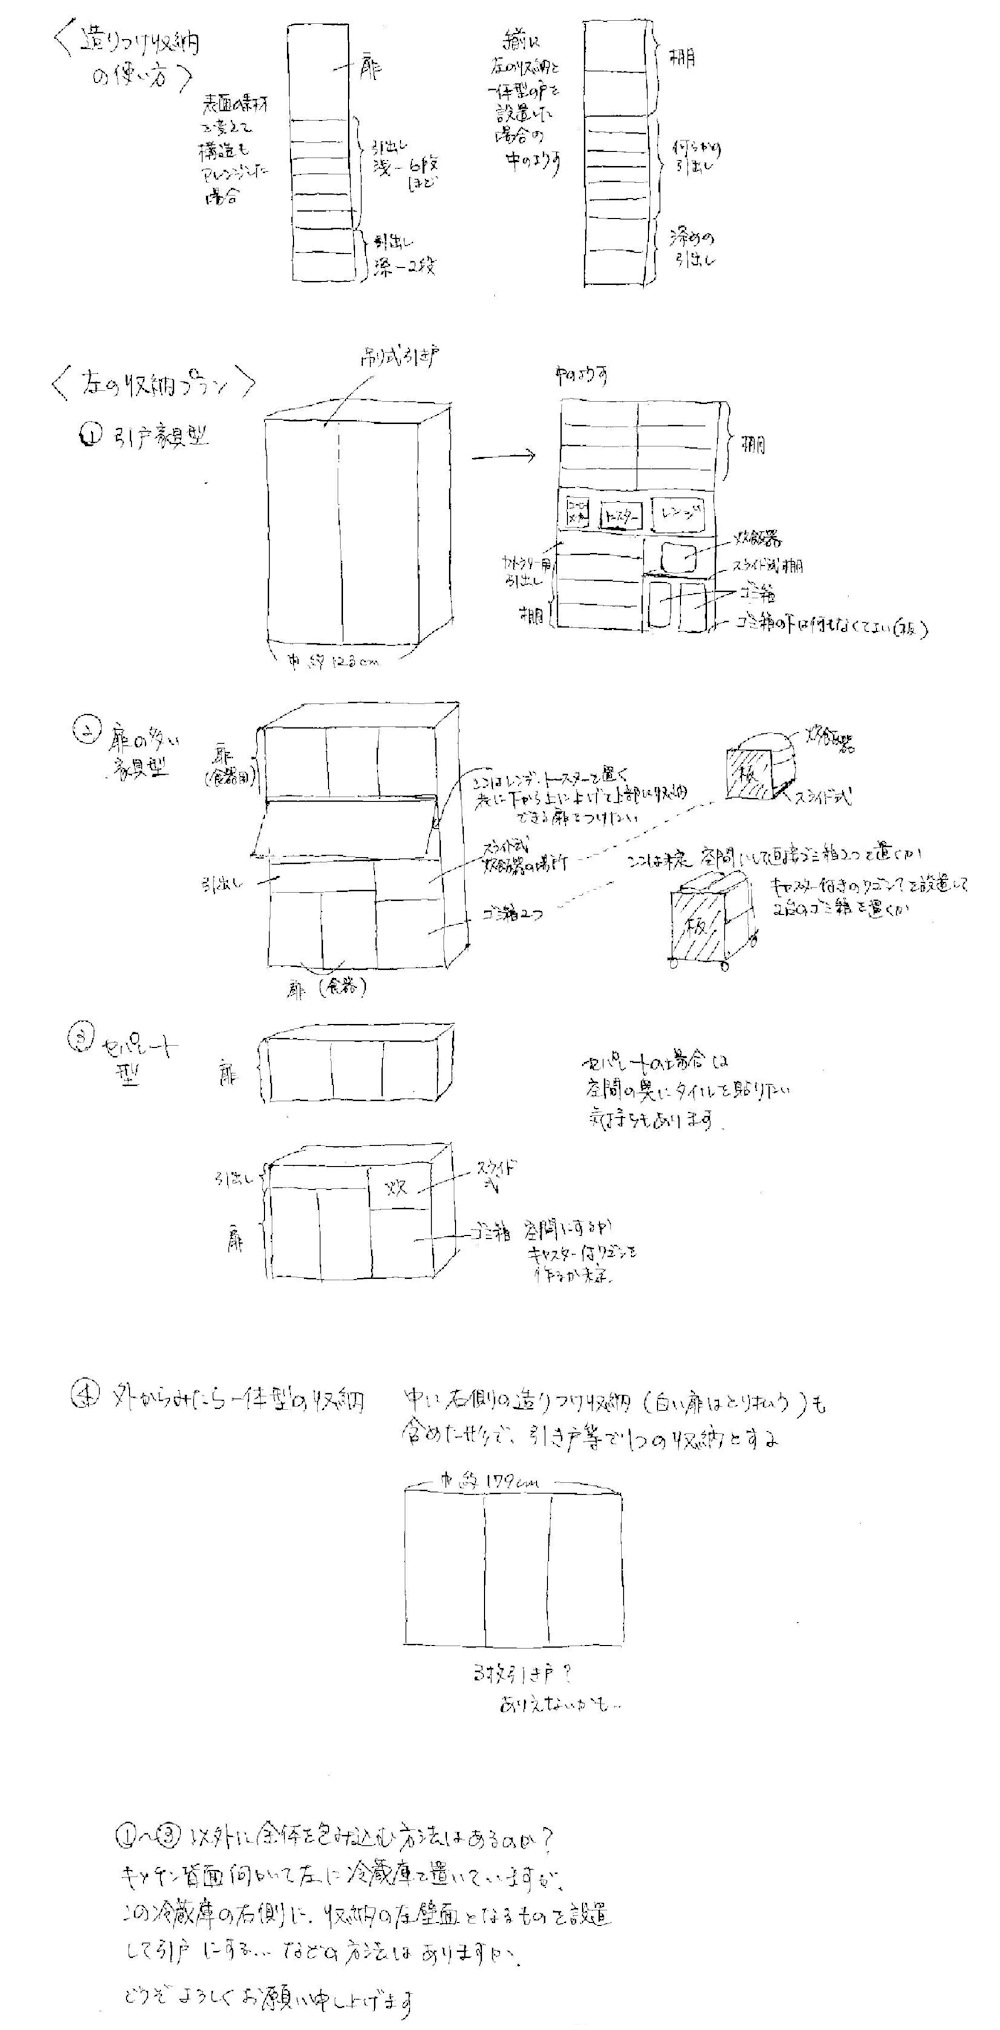 〈造りつけ収納
の使い方〉
表面の素材
を変えて
構造も
アレンジした
場合
扉
引出し
浅-6段
ほど
引出し
深-2段
前に
左の収納と
一体型の戸を
設置した
場合の
中のようす
棚
何らかの
引出し
深めの
引出し
〈左の収納プラン〉
① 引戸家具型
吊り式引き戸
巾 約123cm
中のようす
棚
トースター
レンジ
炊飯器
スライド式棚
ゴミ箱
ゴミ箱の下は何もなくてよい(板)
カトラリー用
引出し
棚
② 扉の多い
家具型
扉
(食器用)
ここはレンジ、トースターを置く
下から上に上げて上部に収納
できる扉をつけたい
スライド式
炊飯器の場所
引出し
ゴミ箱2つ
扉(食器)
炊飯器
板
スライド式
ここは未定 空間にして直接ゴミ箱2つを置くか
キャスター付きのワゴンを設置して
2台のゴミ箱を置くか
板
③ セパレート
型
扉
セパレートの場合は
空間の奥にタイルを貼りたい
気持ちもあります。
引出し
炊
スライド
式
扉
ゴミ箱 空間にするか
キャスター付ワゴンを
作るか未定。
④ 外からみたら一体型の収納 中に右側の造りつけ収納(白い扉はとり払う)も
含めた形で、引き戸等で1つの収納とする
巾 約179cm
3枚引き戸?
ありえないかも…
①〜③以外に全体を包み込む方法はあるのか?
キッチン背面向かって左に冷蔵庫を置いていますが、
この冷蔵庫の右側に、収納の左壁面となるものを設置
して引戸にする…などの方法はありますか、
どうぞよろしくお願い申し上げます